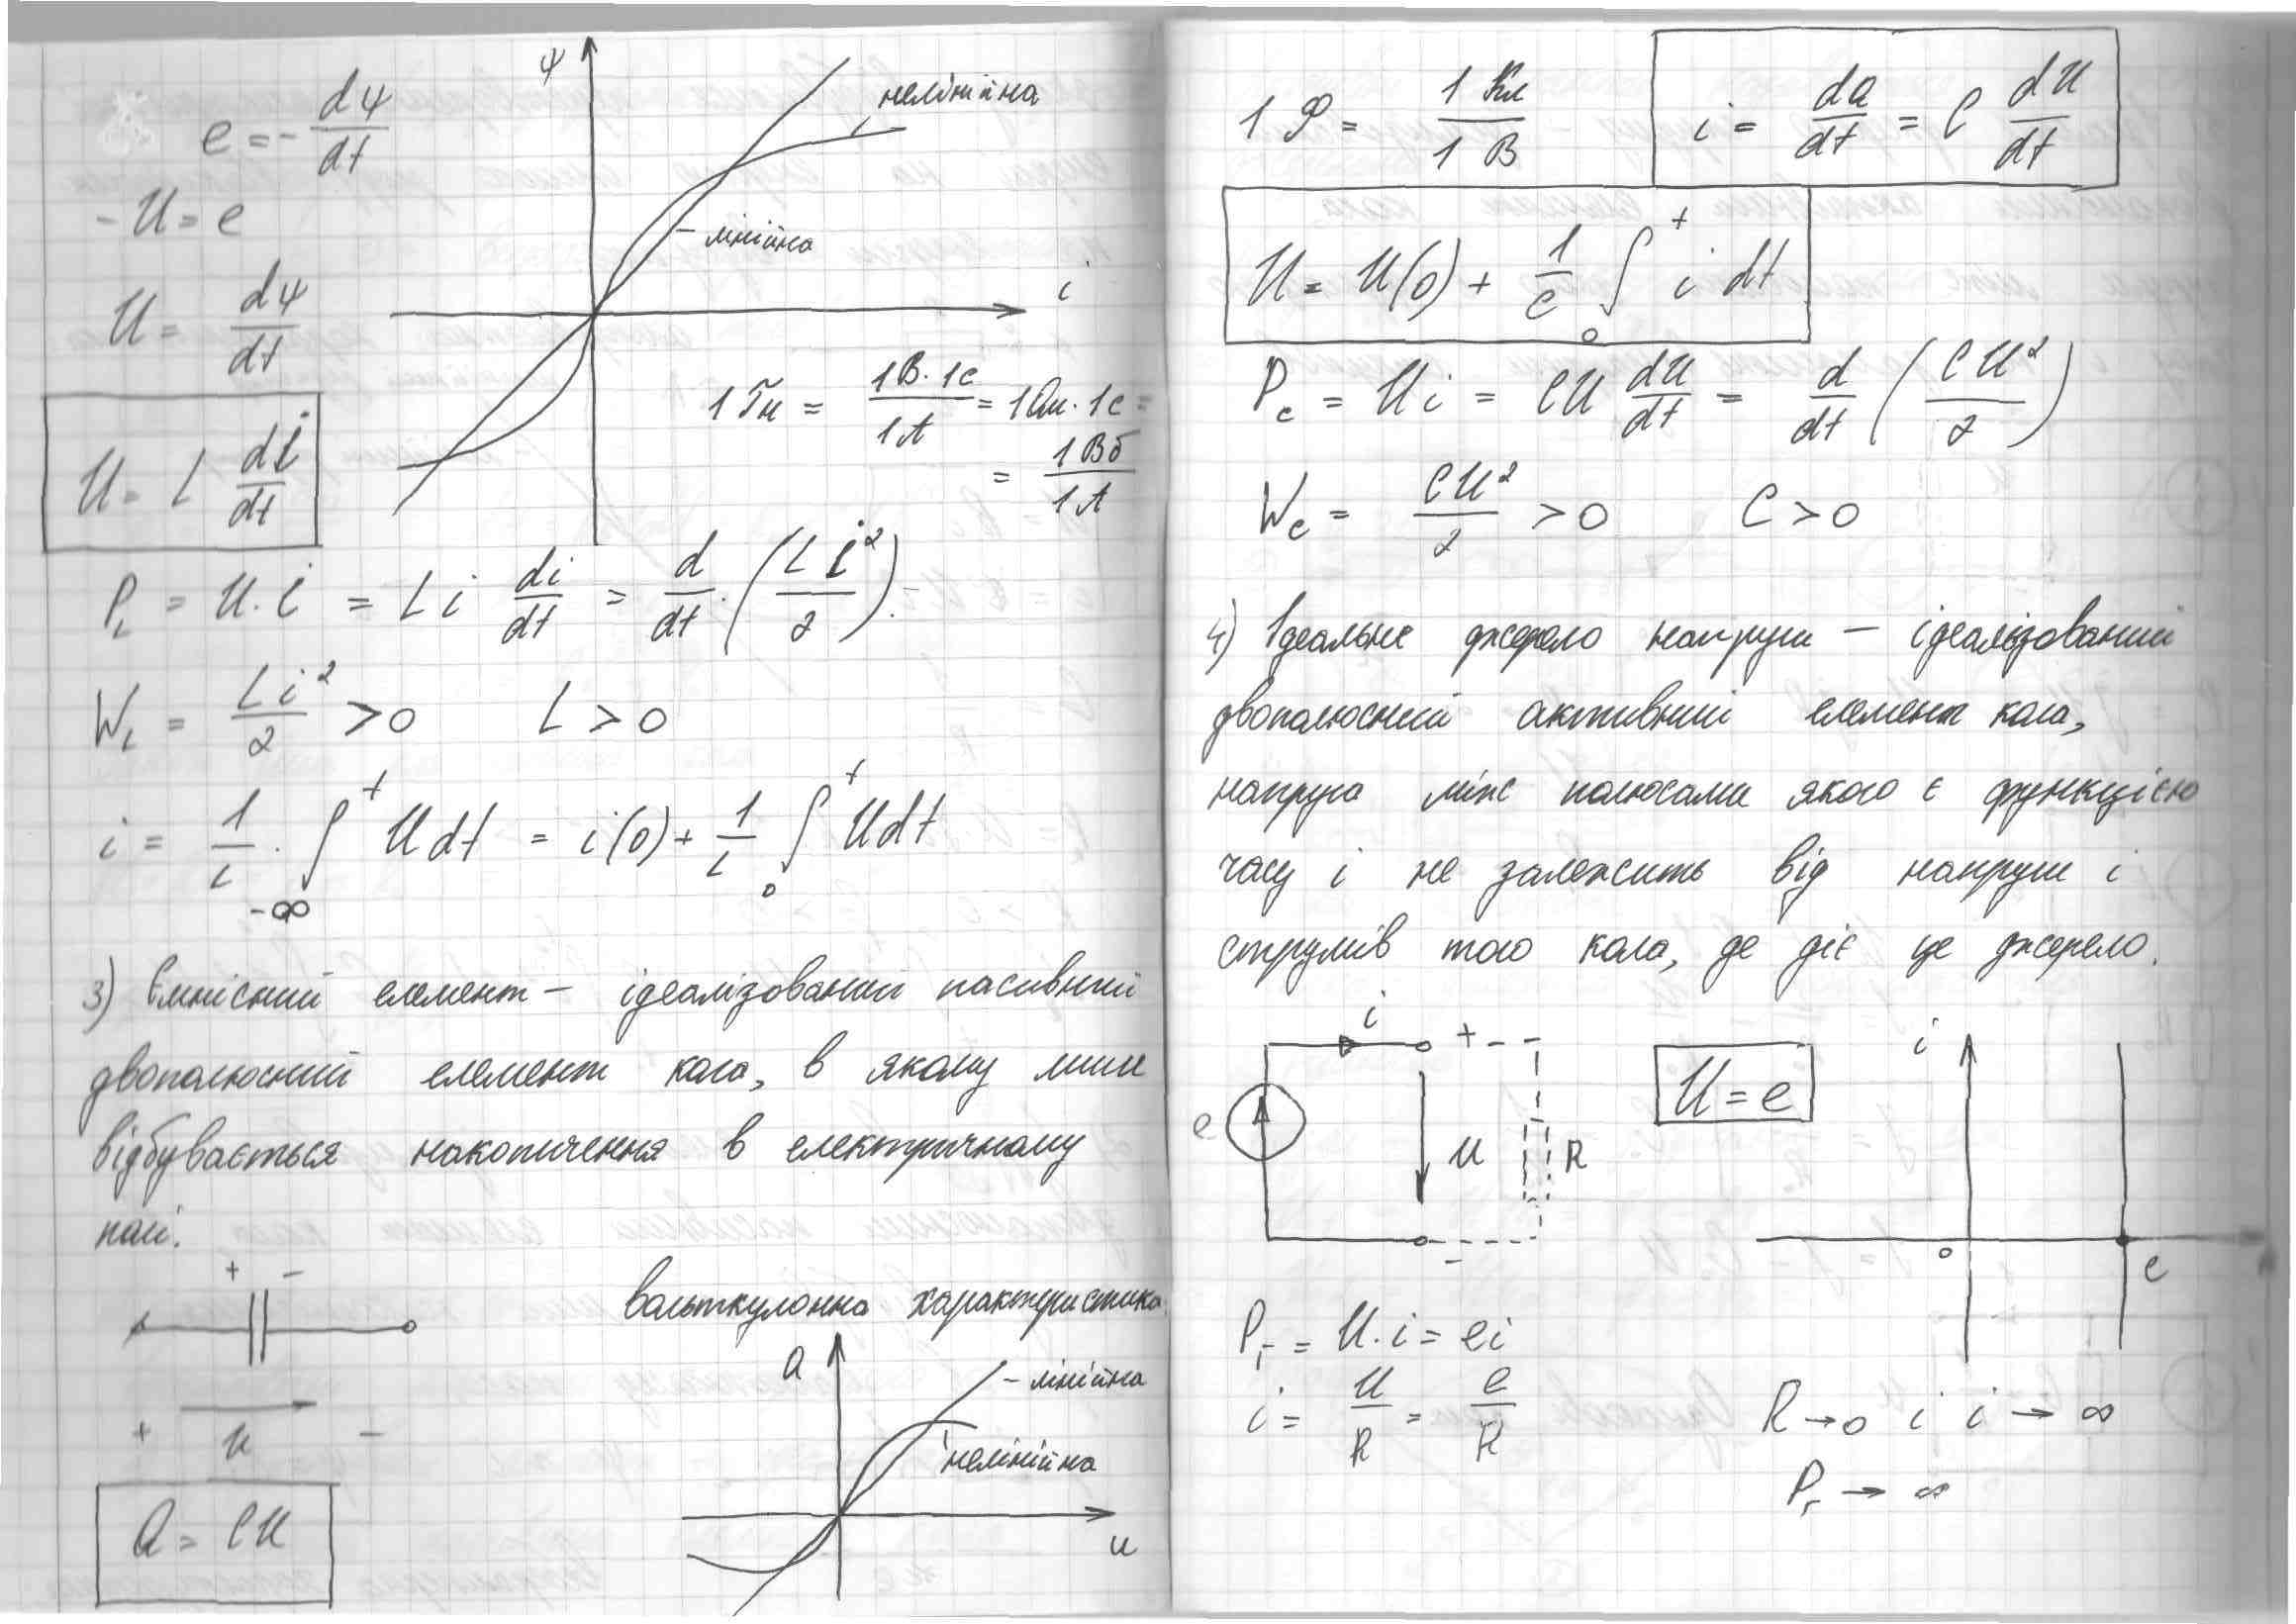 e = - dψ/dt
- U = e
U = dψ/dt
U = L di/dt
ψ
нелінійна
- лінійна
i
1 Гн = 1В·1с/1А = 1Ом·1с =
= 1Вб/1А
P_L = U·i = L i di/dt = d/dt · (L i²/2).
W_L = L i²/2 > 0 L > 0
i = 1/L · ∫_{-∞}^{t} U dt = i(0) + 1/L ∫_0^t U dt
3) Ємнісний елемент – ідеалізований пасивний
двополюсний елемент кола, в якому лише
відбувається накопичення в електричному
полі.
+ -
+ u -
Q = CU
вольткулонна характеристика.
Q
- лінійна
нелінійна
u
1 Ф = 1 Кл/1 В
i = dQ/dt = C dU/dt
U = U(0) + 1/C ∫_0^t i dt
P_C = U i = CU dU/dt = d/dt (CU²/2)
W_C = CU²/2 > 0 C > 0
4) Ідеальне джерело напруги – ідеалізований
двополюсний активний елемент кола,
напруга між полюсами якого є функцією
часу і не залежить від напруги і
струмів того кола, де діє це джерело.
i + -
e U R
U = e
i
0 e
P_г = U·i = ei
i = U/R = e/R
R → 0 і i → ∞
P_г → ∞